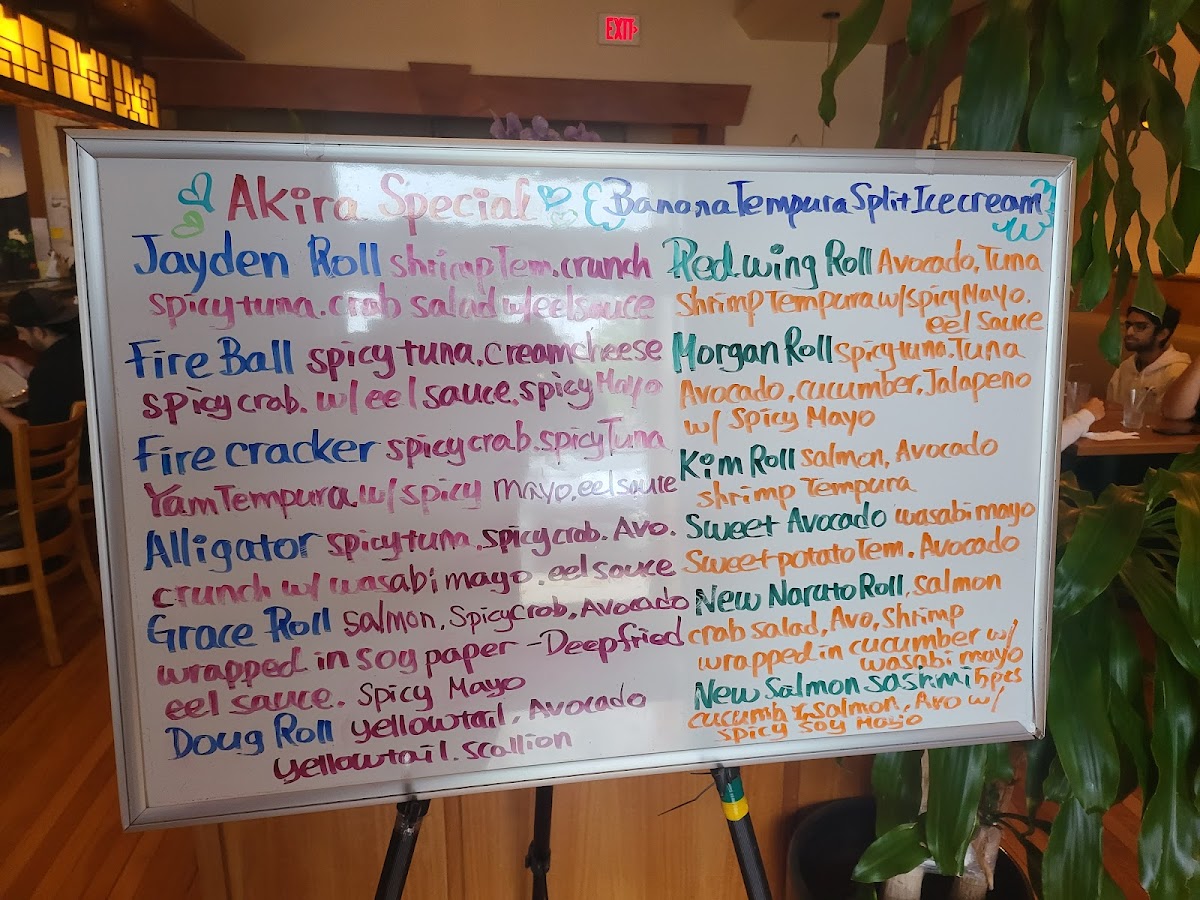 EXIT
Akira Special
Jayden Roll shrimp Tem. crunch
spicy tuna. crab salad w/eel sauce
Fire Ball spicy tuna. creamcheese
spicy crab. w/ eel sauce. spicy Mayo
Fire cracker spicy crab. spicy Tuna
Yam Tempura w/ spicy mayo. eel sauce
Alligator spicy tuna. spicy crab. Avo.
crunch w/ wasabi mayo. eel sauce
Grace Roll salmon. Spicy Crab, Avocado
wrapped in soy paper - Deep fried
eel sauce. Spicy Mayo
Doug Roll yellowtail, Avocado
yellowtail. scallion
Banana Tempura Split Ice cream
Redwing Roll Avocado, Tuna
Shrimp Tempura w/ spicy Mayo.
eel sauce
Morgan Roll spicy tuna. Tuna
Avocado, cucumber, Jalapeno
w/ Spicy Mayo
Kim Roll salmon, Avocado
shrimp Tempura
Sweet Avocado wasabi mayo
Sweet potato Tem. Avocado
New Naruto Roll, salmon
crab salad, Avo, Shrimp
wrapped in cucumber w/
wasabi mayo
New Salmon sashmi 5pcs
cucumb salmon, Avo w/
spicy soy Mayo